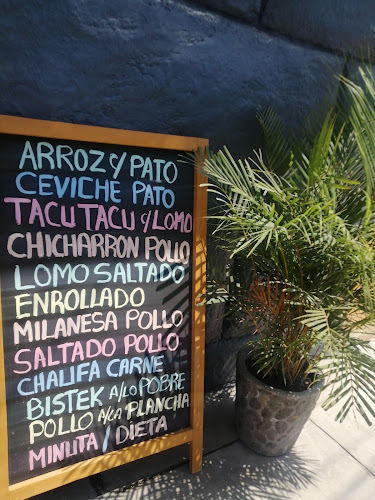 ARROZ Y PATO
CEVICHE PATO
TACU TACU c/LOMO
CHICHARRON POLLO
LOMO SALTADO
ENROLLADO
MILANESA POLLO
SALTADO POLLO
CHALIFA CARNE
BISTEK A/LO POBRE
POLLO A/LA PLANCHA
MINUTA / DIETA